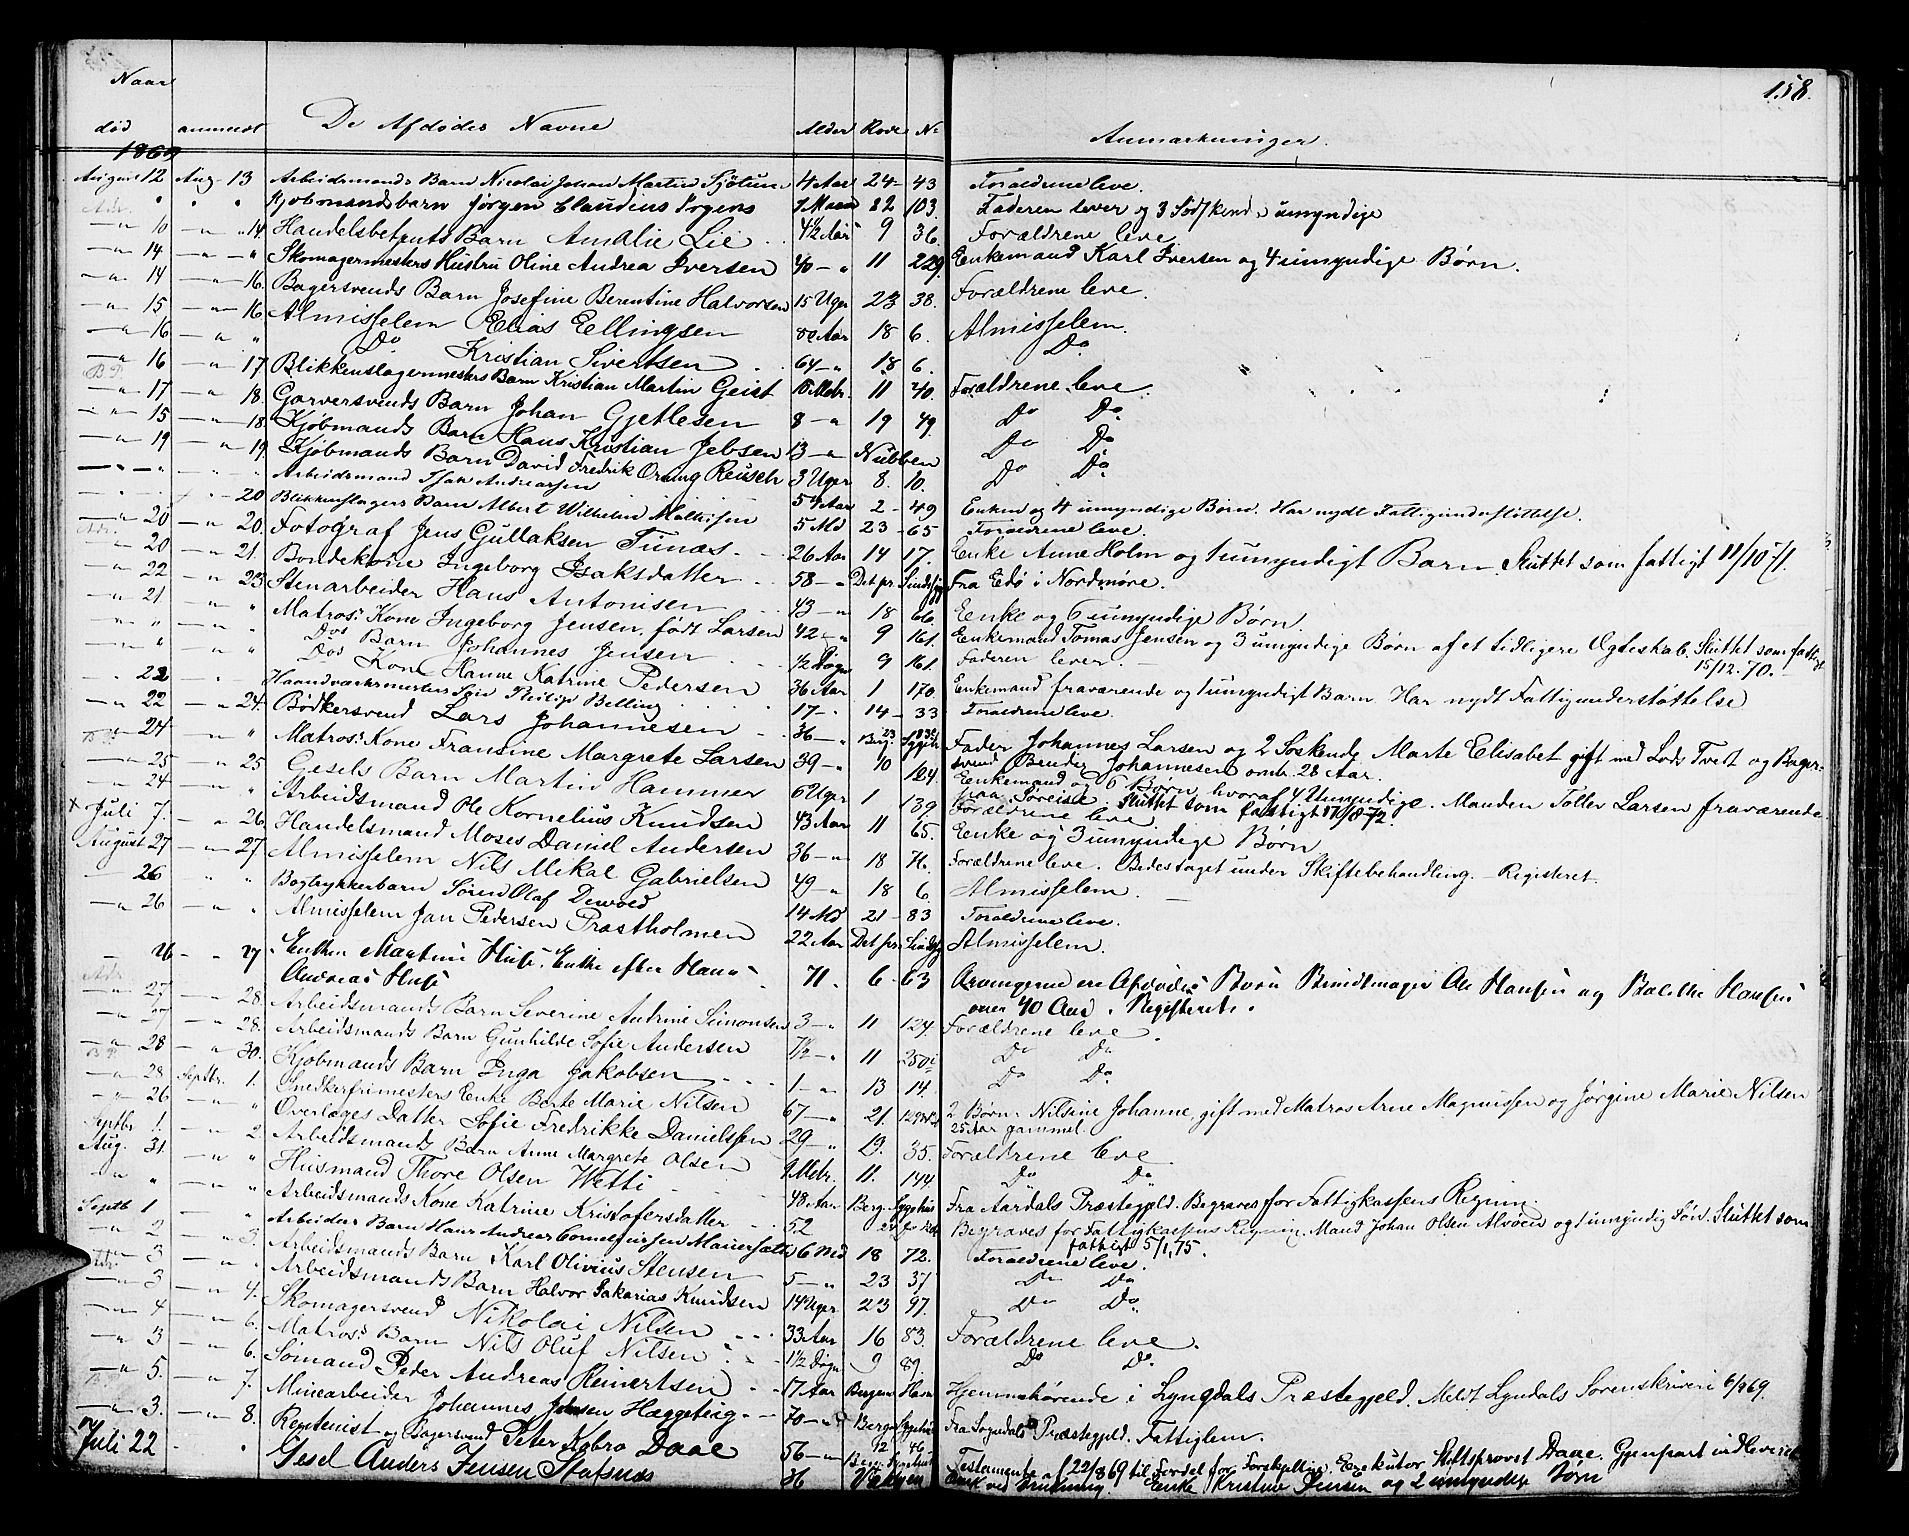 158.
Naar
død anmeldt De Afdødes Navne Alder Rode No Anmærkninger.
1869
August 12 Aug. 13 Arbeidsmands Barn Nicolai Johan Martin Sjøtun 4 Aar 24 43 Forældrene leve.
Kjøbmandsbarn Jørgen Claudius Irgens 7 Maan 22 103. Faderen lever og 3 Sødskende umyndige
10 14. Handelsbetjents Barn Amalie Lie 4½ Aar 9 36. Forældrene leve.
14 Skomagermesters Hustru Oline Andrea Iversen 40 11 229. Enkemand Karl Iversen og 4 umyndige Børn.
14 16. Bagersvends Barn Josefine Berentine Halvorsen 15 Uger 23 38. Forældrene leve.
15 16. Almisselem Elias Ellingsen 80 Aar 18 6. Almisselem.
16 Do Kristian Sivertsen 64 18 6. Do
16 17. Blikkenslagermesters Barn Kristian Martin Geist 10 Mdr. 11 40. Forældrene leve.
17 18. Garversvends Barn Johan Gjetlesen 8 19 49. Do Do
15 18. Kjøbmands Barn Hans Kristian Jebsen 13 Nubben Do Do
19 19. Kjøbmands Barn David Fredrik Oraug Reusch 3 Uger 8. 10. Do Do
Arbeidsmand Isak Andreassen 54 Aar 2 49 Enken og 4 umyndige Børn. Har nydt Fattigunderstøttelse.
20 Blikkenslagers Barn Albert Wilhelm Mathisen 5 Md 23 65 Forældrene leve.
20 20. Fotograf Jens Gullaksen Tunæs 26 Aar 14 17. Enke Anne Holm og 1 umyndigt Barn. Sluttet som fattigt 11/10 71.
20 21. Bondekone Ingeborg Isaksdatter 58 Det pr. Fra Edø i Nordmøre.
22 23. Stenarbeider Hans Antonisen 43 18 66. Enke og 6 umyndige Børn
21 Matros: Kone Ingeborg Jensen, født Larsen 42 9 161. Enkemand Tomas Jensen og 3 umyndige Børn af et tidligere Ægteskab. Sluttet som fattigt 15/12.70.
Dos Barn Johannes Jensen ½ Døgn 9 161. Faderen lever.
Dos Kone Hanne Katrine Pedersen 36 Aar 1 170. Enkemand fraværende og 1 umyndigt Barn. Har nydt Fattigunderstøttelse
22 Haandværksmesters Søn Philip Belling 17 14 33 Forældrene leve.
22 24. Bødkersvend Lars Johannesen 36 Fader Johannes Larsen og 2 Søskende Marte Elisabet gift med Lods Tvet og Bager-
svend Bender Johannesen omtr. 28 Aar.
24 Matros: Kone Fransine Margrete Larsen 39 10 124. Enkemand og 6 Børn, hvoraf 4 Umyndige. Manden Töller Larsen fraværende
paa Søreise. Sluttet som fattigt 17/8 72.
25 25 Gesels Barn Martin Hammer 6 Uger 1 139. Forældrene leve
24 Arbeidsmand Ole Kornelius Knudsen 43 Aar 11 65. Enke og 3 umyndige Børn
Juli 7. 26. Handelsmand Moses Daniel Andersen 36 18 Forældrene leve. Bedestaget under Skiftebehandling. Registeret.
August 27 27. Almisselem Nils Mikal Gabrielsen 49 18 6. Almisselem.
26 Bogtrykkerbarn Søren Olaf 14 Md 21 83 Forældrene leve.
26 Almisselem Jan Pedersen Præstholmen 22 Aar Det pr. Almisselem.
26 27. Enken Martini Huse. Enke efter Hans
Andreas Huse 71. 6 63 Arvingerne ere Afdødes Børn Ole Hansen og Hansen
over 40 Aar. Registeret.
27 28. Arbeidsmands Barn Severine Andrine Simonsen 3 11 124. Forældrene leve.
27 28. Arbeidsmands Barn Gunhilde Sofie Andersen 7½ 11 250 Do Do
28 30. Kjøbmands Barn Inga Jakobsen 1 13 14. Do Do
28 Septbr. 1. Snedkerfrimesters Enke Berte Marie Nilsen 67 21. 2 Børn: Nilsine Johanne, gift med Matros Arne Magnussen og Jørgine Marie Nilsen
25 Aar gammel.
26 Overlæges Datter Sofie Fredrikke Danielssen 29 19. 35. Forældrene leve.
Septbr. 1. 2 Arbeidsmands Barn Anne Margrete Olsen 9 Mdr. 11. 144. Do Do
Aug. 31. Huismand Thore Olsen Wetti 48 Aar Berg. Sygehus Fra Aardals Præstegjeld. Begraves for Fattigkassens Regning.
Arbeidsmands Kone Katrine Kristofersdatter 52 Begraves for Fattigkassens Regning. Mand Johan Olsen Alvøen og 1 umyndig Søn. Sluttet som
fattigt 5/1,75.
Septb 1 Arbeiders Barn Hans Andreas Corneliussen 6 Md 18 72. Forældrene leve.
2 3. Arbeidsmands Barn Karl Olivius Stensen 5 23 37 Do Do
3 Arbeidsmands Barn Halvor Sakarias Knudsen 14 Uger 23 97. Do Do
3 4. Skomagersvend Nikolai Nilsen 33 Aar 16 83. Forældrene leve.
4 6. Matros: Barn Nils Oluf Nilsen 1½ Døgn 9 89. Do Do.
3 6. Sømand Peder Andreas Reinertsen 17 Aar Bergens Havn Hjemmehørende i Lyngdals Præstegjeld. Meldt Lyndals Sorenskriveri 6/9 69.
5. 7. Minearbeider Johannes Jensen Hæggetag 70 Bergs Sygehus Fra Sogndals Præstegjeld. Fattiglem.
3. 8. Repetenist og Bagersvend Peter Kobro Daae 56 Testamente af 22/8 69 til Fordel for Forskjellige. Exekutor Stiftsprovst Daae. Gjenpart indleveret
Juli 22 Gesel Anders Jensen Stafsnæs 36 Enke Kristine Jensen og 2 umyndige Børn